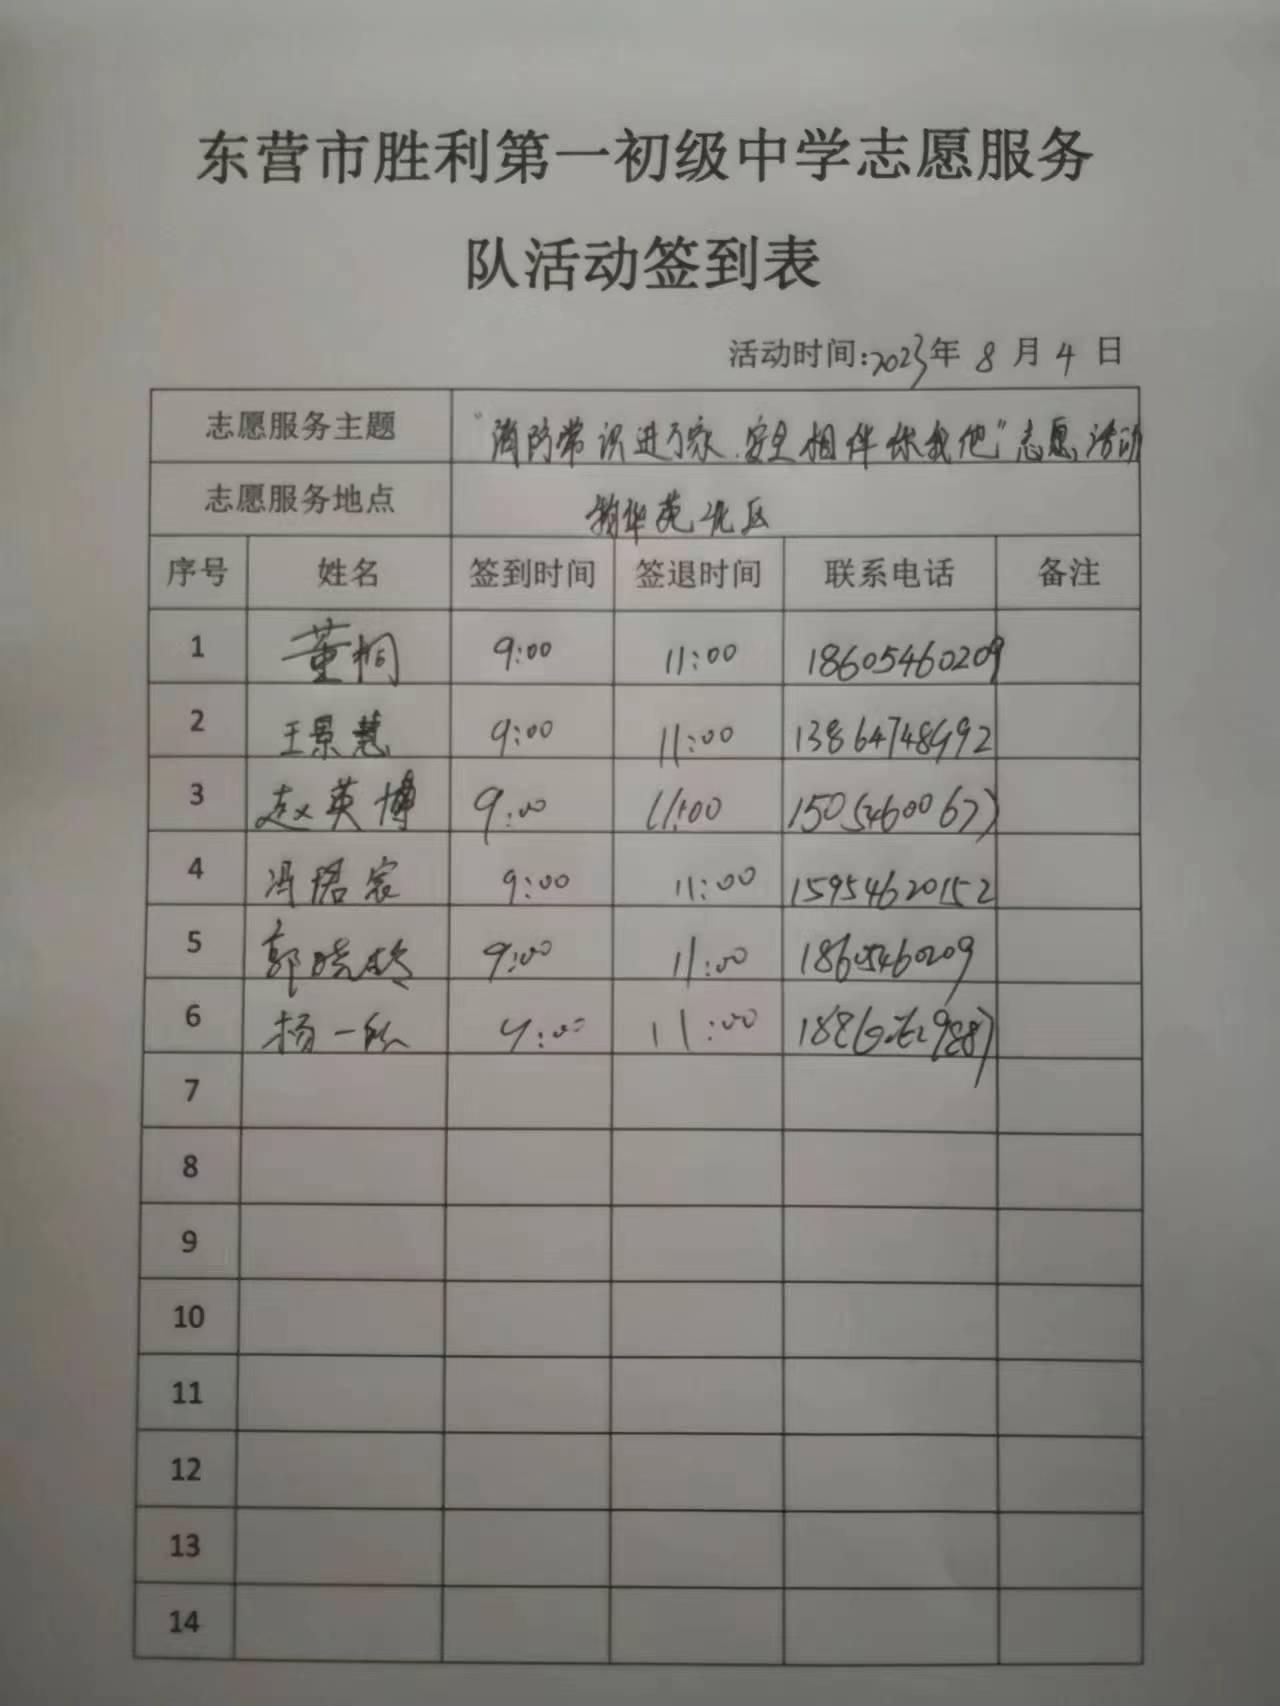 东营市胜利第一初级中学志愿服务
队活动签到表
活动时间:2023年 8 月 4 日
志愿服务主题 "消防常识进万家、安全相伴你我他"志愿活动
志愿服务地点 锦华苑北区
序号 姓名 签到时间 签退时间 联系电话 备注
1 董桐 9:00 11:00 18605460209
2 王景慧 9:00 11:00 13864748992
3 赵英博 9:00 11:00
4 冯珺宸 9:00 11:00 15954620152
5 郭晓玲 9:00 11:00 18605460209
6 杨一 9:00 11:00
7
8
9
10
11
12
13
14